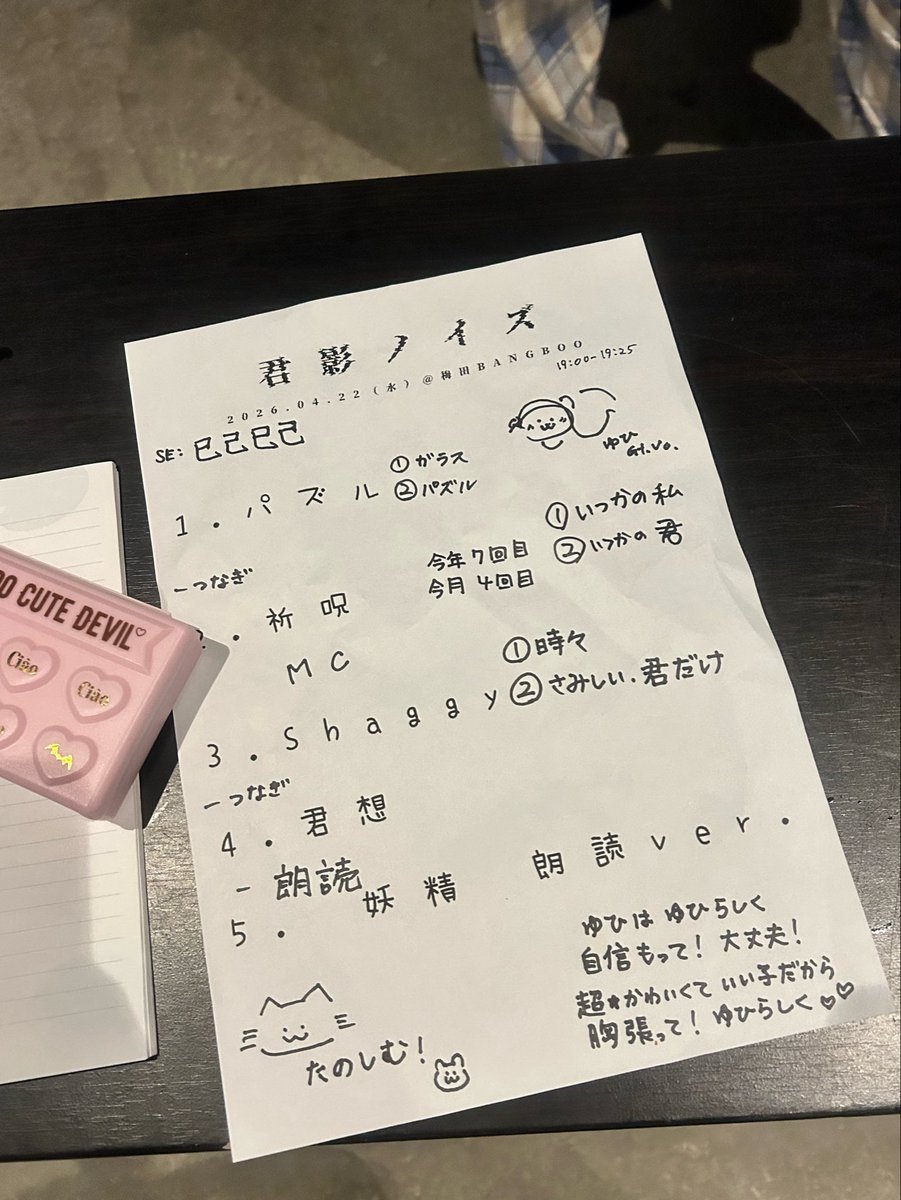 君影ノイズ
2026.04.22(水)@梅田BANGBOO
19:00-19:25
SE:
ゆひ
Gt.Vo.
1.パズル ①ガラス
②パズル
①いつかの私
②いつかの君
ーつなぎ
今年7回目
今月4回目
.祈呪
MC
①時々
3.Shaggy ②さみしい.君だけ
ーつなぎ
4.君想
-朗読
5.妖精 朗読ver.
ゆひは ゆひらしく
自信もって!大丈夫!
超★かわいくて いい子だから
胸張って!ゆひらしく♡♡
たのしむ!
OO CUTE DEVIL♡
Ciao
Ciao